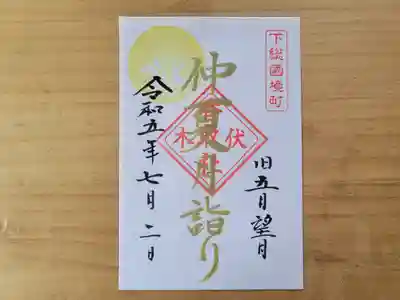 下総國境町
旧五月望月
仲夏月詣り
伏木
香取社
令和五年七月二日